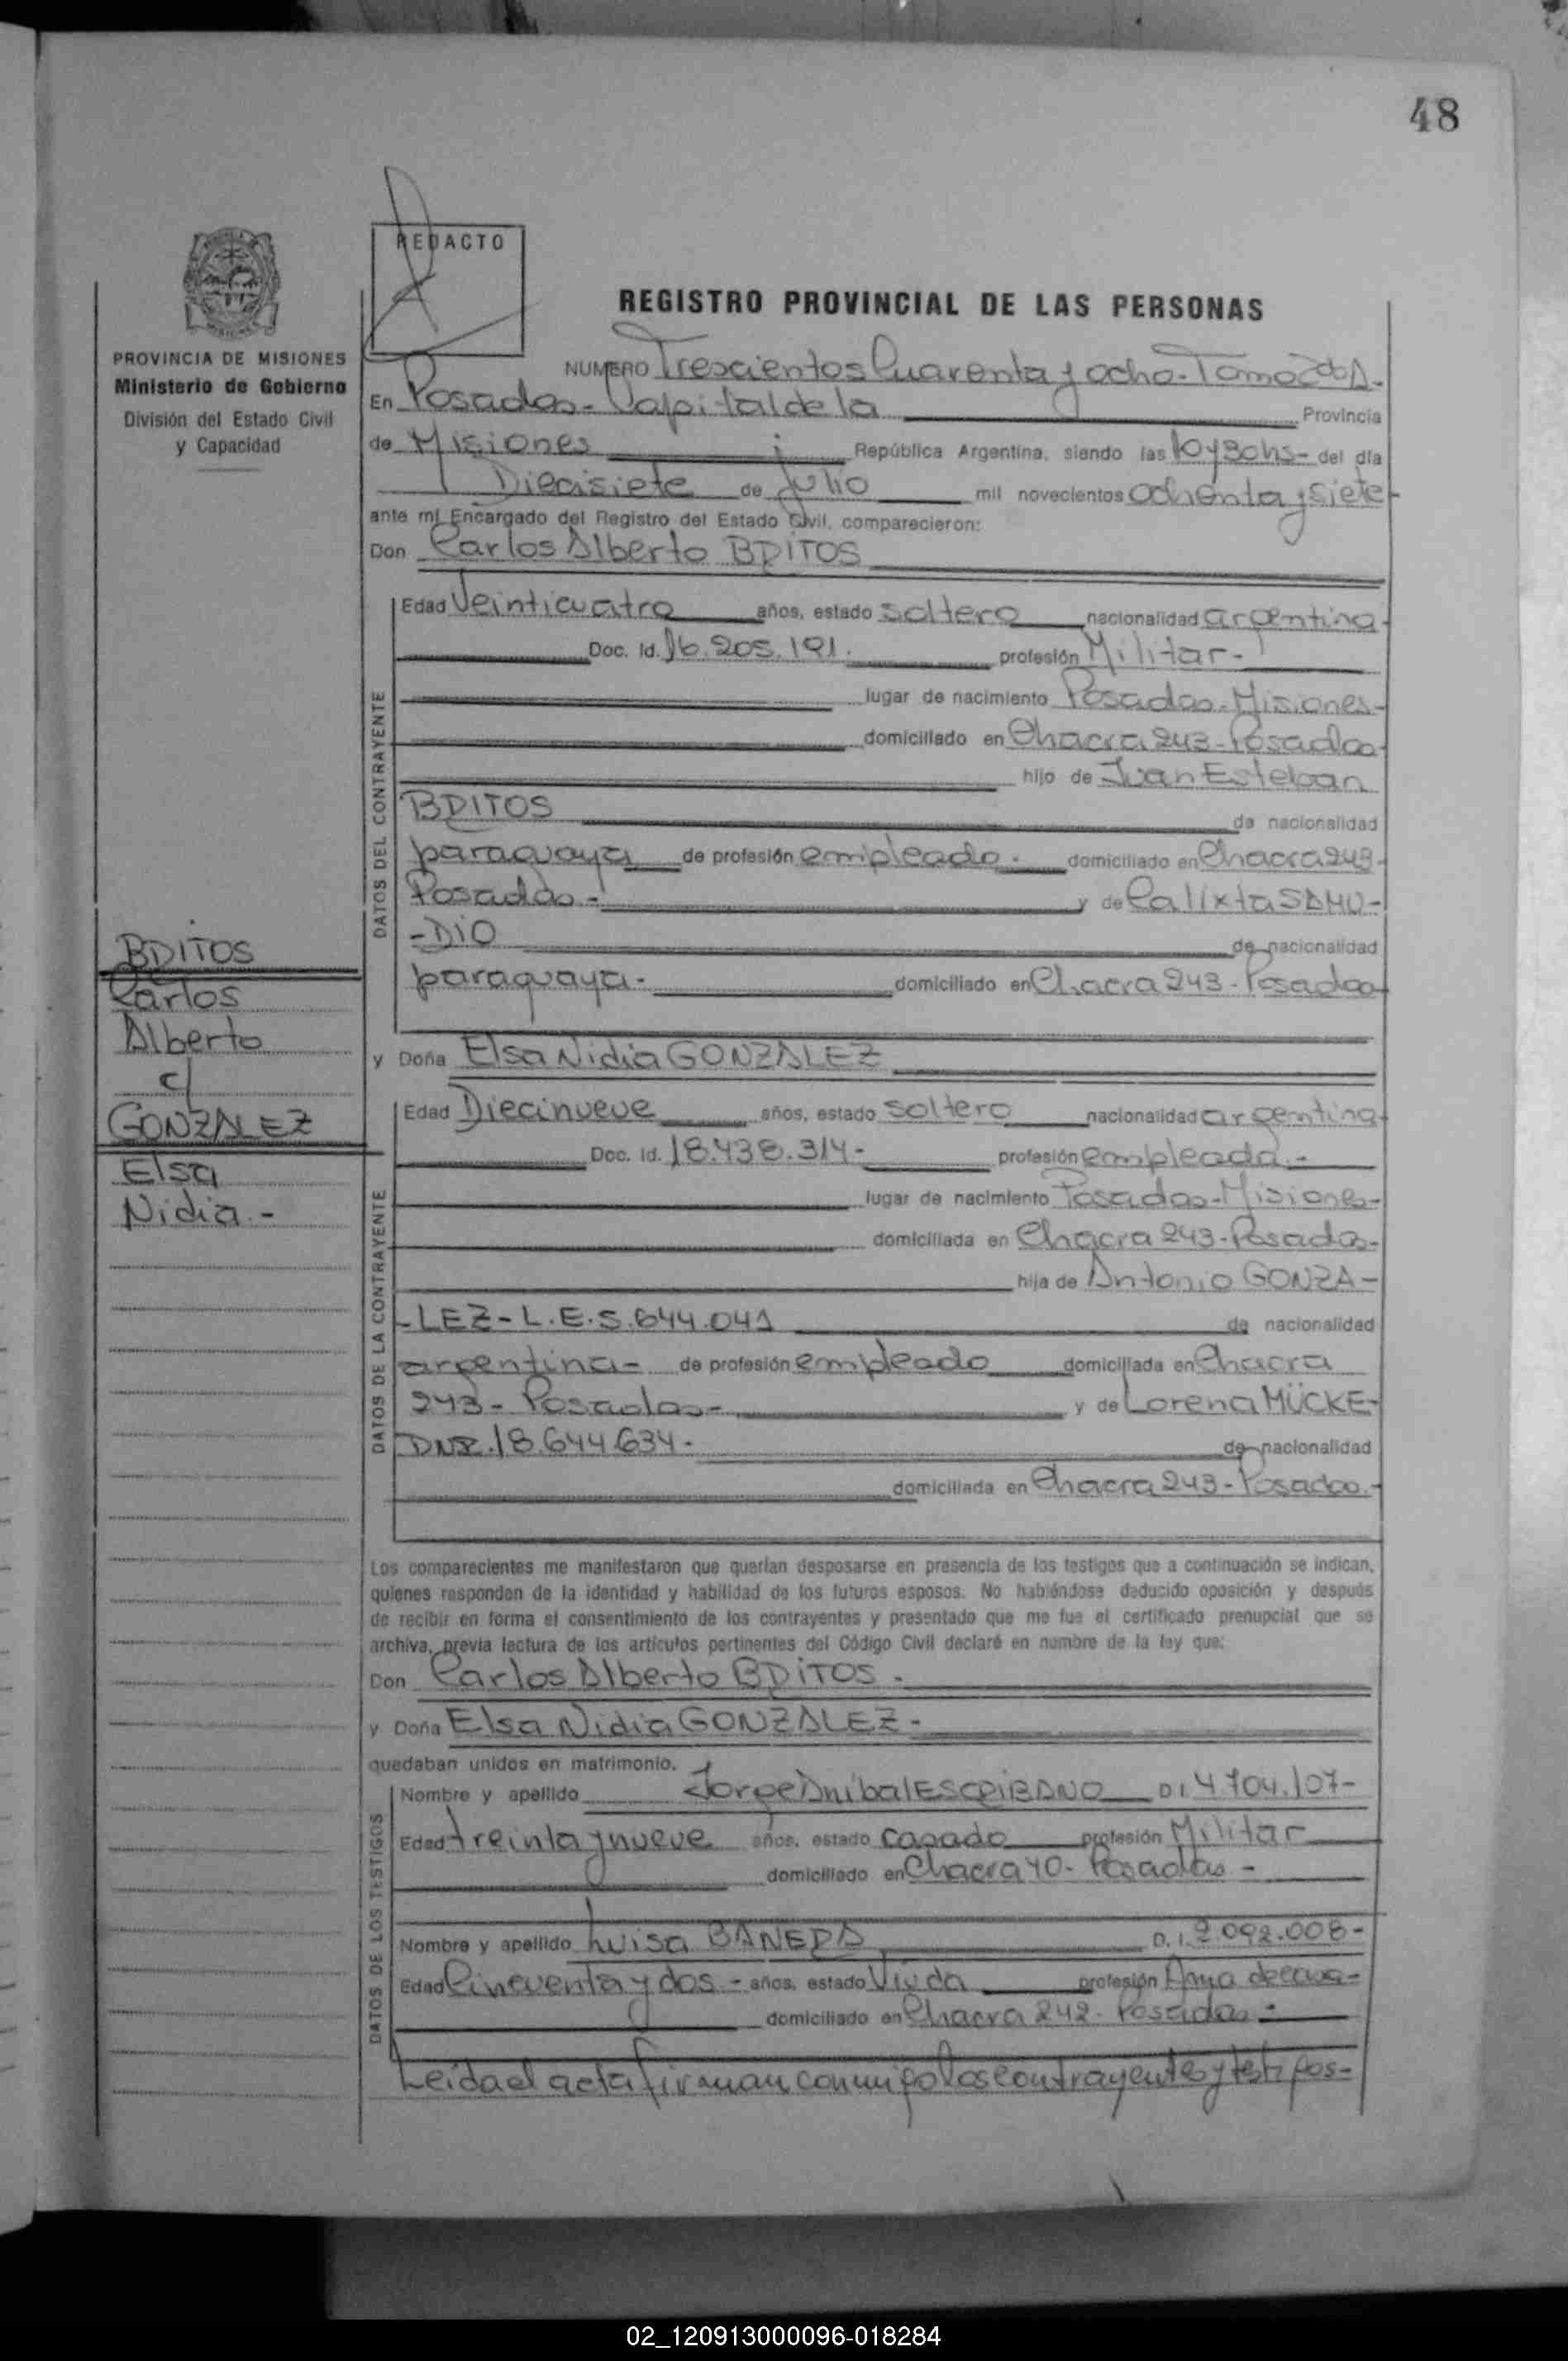 48
REDACTO
REGISTRO PROVINCIAL DE LAS PERSONAS
PROVINCIA DE MISIONES
Ministerio de Gobierno
División del Estado Civil
y Capacidad
NUMERO Trescientos Cuarenta y ocho - Tomo 2do A.-
En Posadas - Capital de la Provincia
de Misiones República Argentina, siendo las 10 y 30 hs - del día
Diecisiete de Julio mil novecientos ochenta y siete
ante mí Encargado del Registro del Estado Civil, comparecieron:
Don Carlos Alberto BRITOS
DATOS DEL CONTRAYENTE
Edad Veinticuatro años, estado soltero nacionalidad argentina-
Doc. Id. 16.205.191. profesión Militar-
lugar de nacimiento Posadas-Misiones-
domiciliado en Chacra 243-Posadas-
hijo de Juan Esteban
BRITOS de nacionalidad
paraguaya de profesión empleado. domiciliado en Chacra 243-
Posadas- y de Calixta SAMU-
-DIO de nacionalidad
paraguaya- domiciliado en Chacra 243-Posadas
BRITOS
Carlos
Alberto
c/
GONZALEZ
Elsa
Nidia.-
y Doña Elsa Nidia GONZALEZ
DATOS DE LA CONTRAYENTE
Edad Diecinueve años, estado soltero nacionalidad argentina-
Doc. Id. 18.438.314- profesión empleada.-
lugar de nacimiento Posadas-Misiones-
domiciliada en Chacra 243-Posadas-
hija de Antonio GONZA-
-LEZ-L.E.5.644.041 de nacionalidad
argentina- de profesión empleado domiciliada en Chacra
243- Posadas- y de Lorena MÜCKE-
DNI.18.644.634- de nacionalidad
domiciliada en Chacra 243-Posadas.-
Los comparecientes me manifestaron que querían desposarse en presencia de los testigos que a continuación se indican,
quienes responden de la identidad y habilidad de los futuros esposos. No habiéndose deducido oposición y después
de recibir en forma el consentimiento de los contrayentes y presentado que me fue el certificado prenupcial que se
archiva, previa lectura de los artículos pertinentes del Código Civil declaré en nombre de la ley que:
Don Carlos Alberto BRITOS.
y Doña Elsa Nidia GONZALEZ-
quedaban unidos en matrimonio.
DATOS DE LOS TESTIGOS
Nombre y apellido Jorge Anibal ESCRIBANO D.I. 4.704.107-
Edad treinta y nueve años, estado casado profesión Militar
domiciliado en Chacra 40- Posadas-
Nombre y apellido Luisa BANERA D.I. 2.092.008-
Edad Cincuenta y dos - años, estado Viuda profesión Ama de casa-
domiciliado en Chacra 242- Posadas.-
Leida el acta firman conmigo los contrayentes y testigos-
02_120913000096-018284